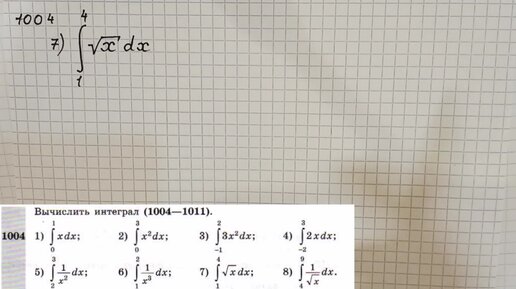 1004
7) ∫₁⁴ √x dx
Вычислить интеграл (1004—1011).
1004 1) ∫₀¹ x dx; 2) ∫₀³ x² dx; 3) ∫₋₁² 3x² dx; 4) ∫₋₂³ 2x dx;
5) ∫₂³ 1/x² dx; 6) ∫₁² 1/x³ dx; 7) ∫₁⁴ √x dx; 8) ∫₄⁹ 1/√x dx.